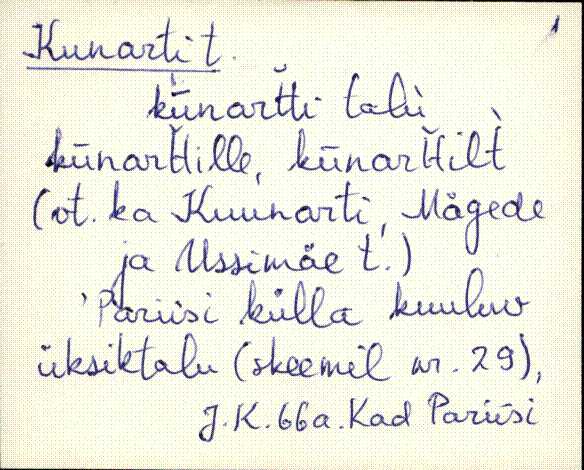 Kunarti t.
kūnartti talù
kūnarttille, kūnarttilt
(vt. ka Kuunarti, Mägede
ja Ussimäe t.)
'Pariisi külla kuuluv
üksiktalu (skeemil nr. 29),
J.K. 66a. Kad Pariisi